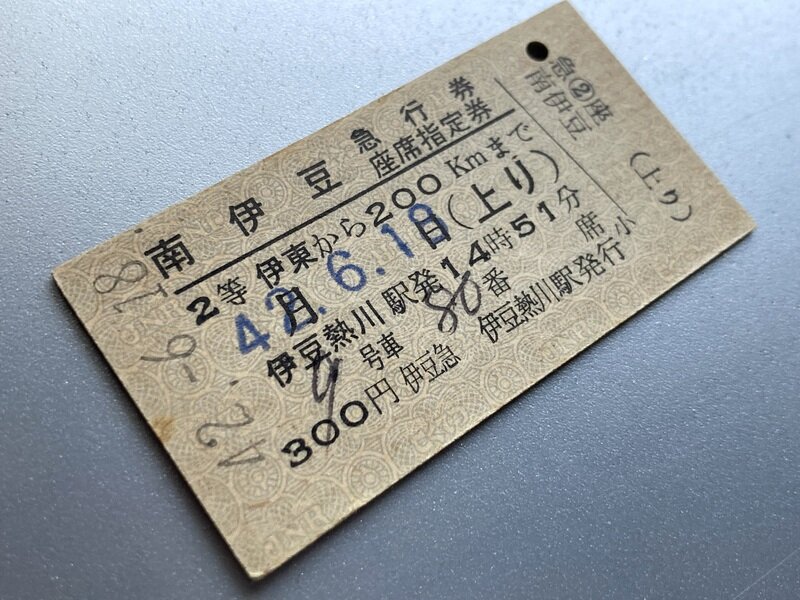 南伊豆 急行券 座席指定券
2等 伊東から200Kmまで
42.6.18 月 日 (上り)
伊豆熱川駅発14時51分
9号車 80番 席
300円 伊豆急 伊豆熱川駅発行
小
急②座
南伊豆
(上り)
42.-6.18.
JNR